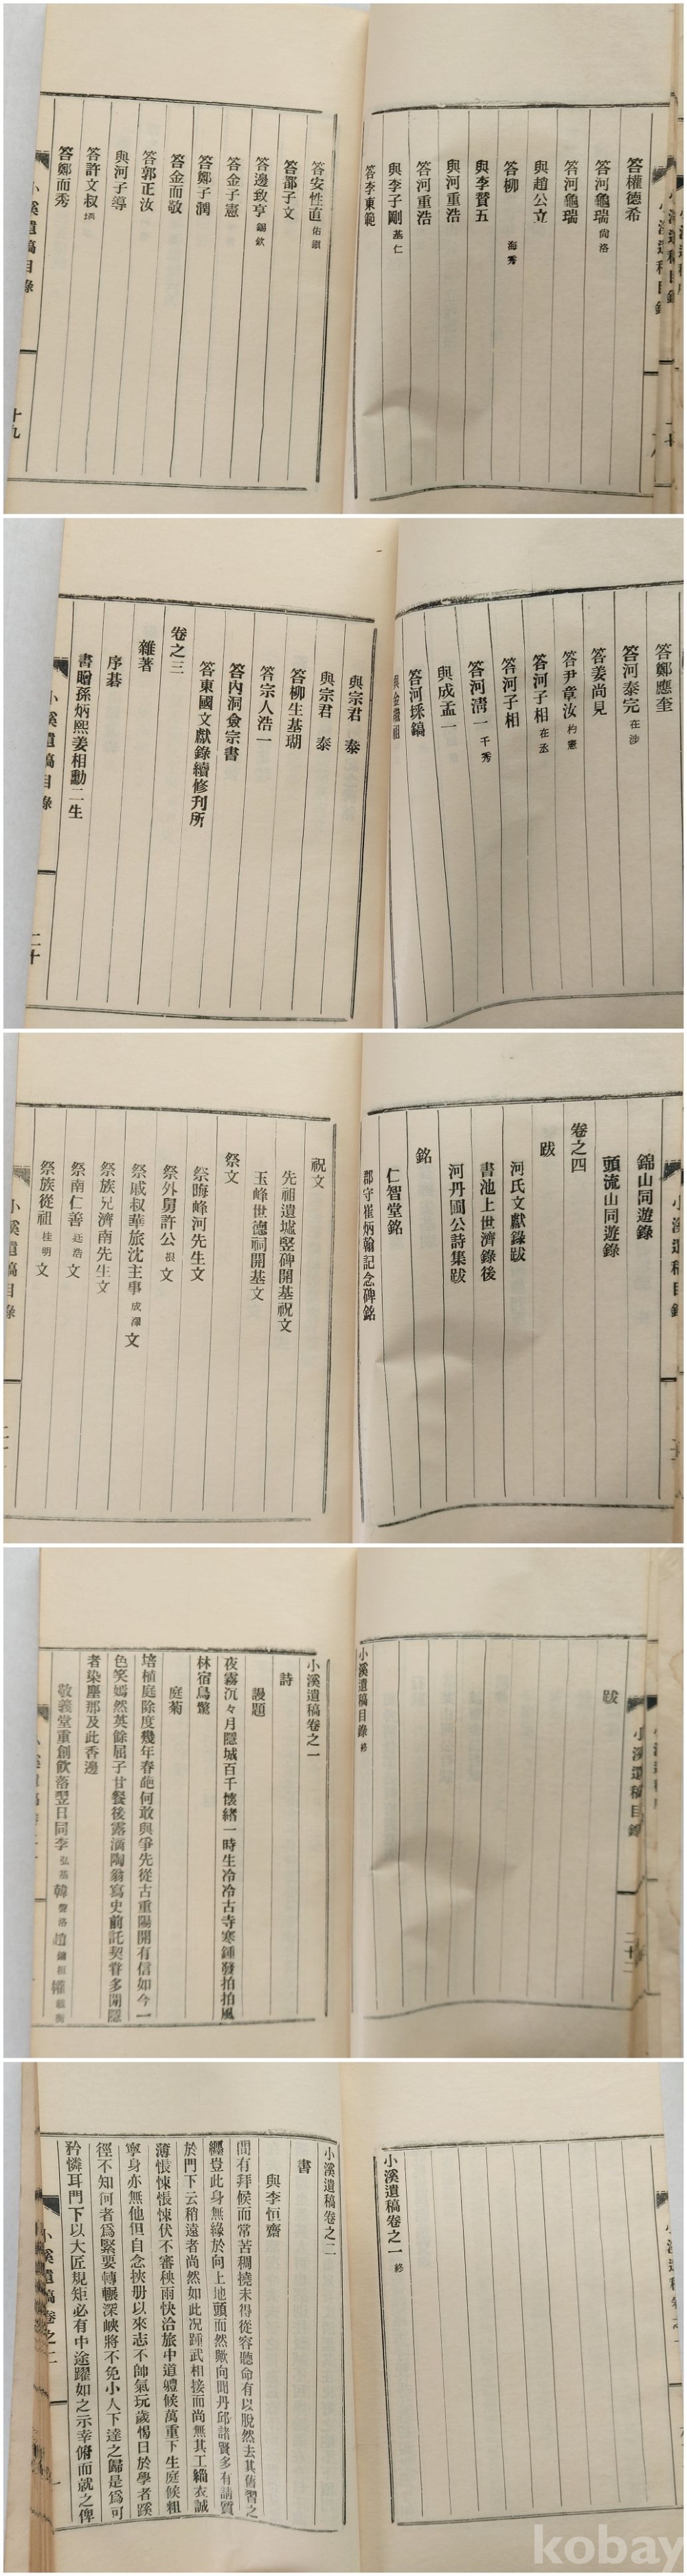 答權德希
答河龜瑞 尙洛
答河龜瑞
與趙公立
答柳 海秀
與李贊五
與河重浩
答河重浩
與李子剛 基仁
答李東範
答安性直 佑鎭
答邵子文
答邊致亨 錫欽
答金子憲
答鄭子潤
答金而敬
答郭正汝
與河子導
答許文叔
答鄭而秀
小溪遺稿目錄
十九
答鄭應奎
答河泰完 在涉
答姜尙見
答尹章汝 杓憲
答河子相 在丞
答河子相
答河淸一 千秀
與成孟一
答河採鎬
與宗君 泰
與宗君 泰
答柳生基瑚
答宗人浩一
答內洞僉宗書
答東國文獻錄續修刊所
卷之三
雜著
序碁
書贈孫炳熙姜相勳二生
小溪遺稿目錄
二十
小溪遺稿目錄
錦山同遊錄
頭流山同遊錄
卷之四
跋
河氏文獻錄跋
書池上世濟錄後
河丹圃公詩集跋
銘
仁智堂銘
郡守崔炳翰記念碑銘
祝文
先祖遺墟竪碑開基祝文
玉峰世德祠開基文
祭文
祭晦峰河先生文
祭外舅許公 根 文
祭戚叔華旅沈主事 成澤 文
祭族兄濟南先生文
祭南仁善 廷浩 文
祭族從祖 桂明 文
小溪遺稿目錄
小溪遺稿目錄
二十二
跋
小溪遺稿目錄 終
小溪遺稿卷之一
詩
謾題
夜霧沉々月隱城百千懷緖一時生冷冷古寺寒鍾發拍拍風
林宿鳥驚
庭菊
培植庭除度幾年春葩何敢與爭先從古重陽開有信如今一
色笑嫣然英餘屈子甘餐後露滴陶翁寫史前託契眷多閒隱
者染塵那及此香邊
敬義堂重創飮落翌日同李 弘基 韓 趙 權
小溪遺稿卷之一 終
小溪遺稿卷之二
書
與李恒齋
間有拜候而常苦稠撓未得從容聽命有以脫然去其舊習之
纒豈此身無緣於向上地頭而然歟向聞丹邱諸賢多有請質
於門下云稍遠者尙然如此況踵武相接而尙無其工緇衣誠
薄悵悚悵悚伏不審秧雨快洽旅中道軆候萬重下生庭候粗
寧身亦無他但自念挾册以來志不帥氣玩歲愒日於學者蹊
徑不知何者爲緊要轉輾深峽將不免小人下達之歸是爲可
矜憐耳門下以大匠規矩必有中途躍如之示幸俯而就之俾
小溪遺稿卷之二
kobay